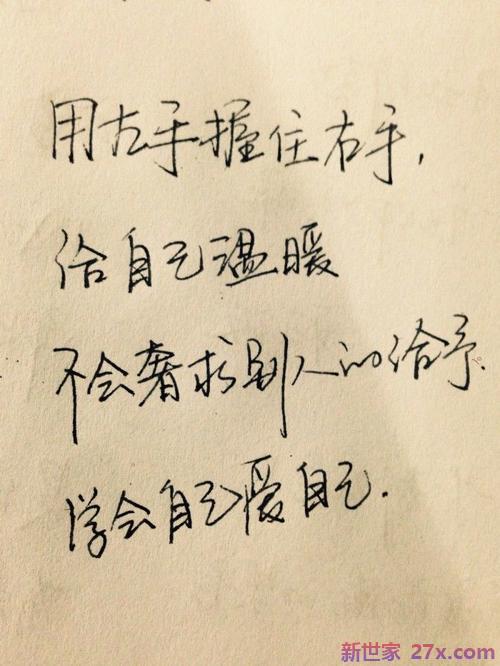 用左手握住右手,
给自己温暖
不会奢求别人的给予.
学会自己爱自己.
新世家 27x.com